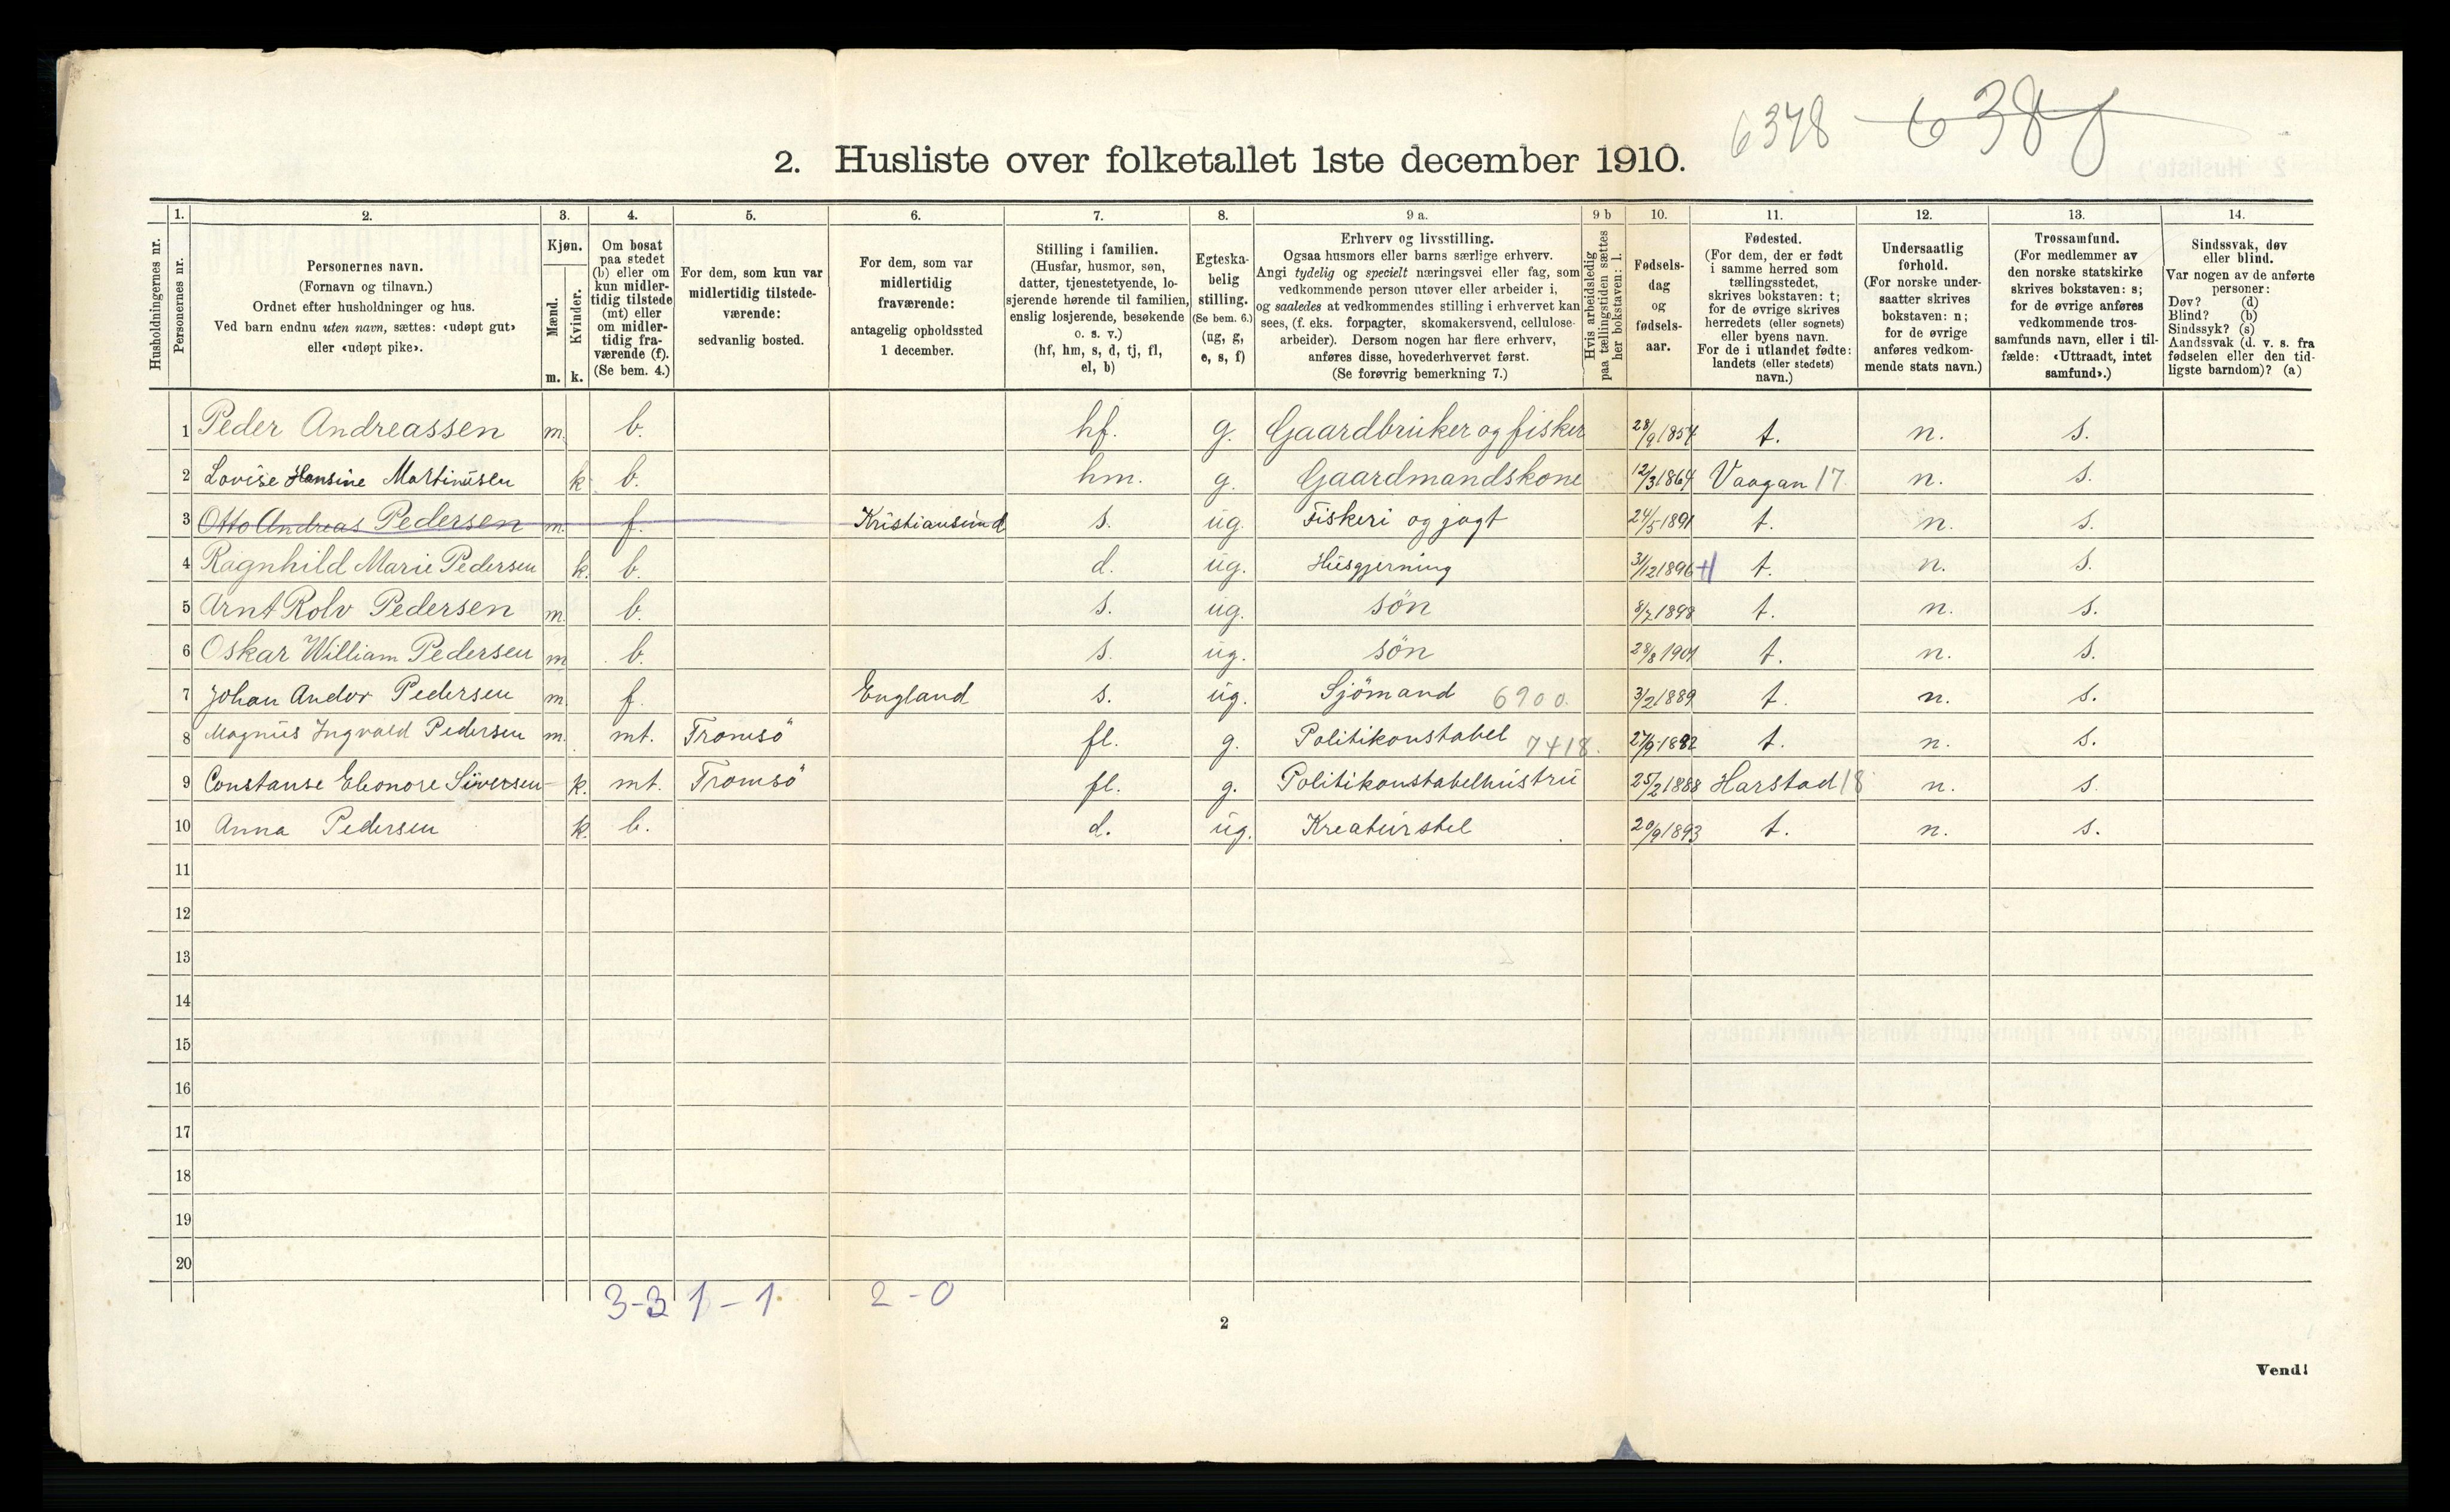 6378 6388
2. Husliste over folketallet 1ste december 1910.
Husholdningernes nr.
1. Personernes nr.
2. Personernes navn.
(Fornavn og tilnavn.)
Ordnet efter husholdninger og hus.
Ved barn endnu uten navn, sættes: «udøpt gut»
eller «udøpt pike».
3. Kjøn.
Mænd. Kvinder.
m. k.
4. Om bosat
paa stedet
(b) eller om
kun midler-
tidig tilstede
(mt) eller
om midler-
tidig fra-
værende (f).
(Se bem. 4.)
5. For dem, som kun var
midlertidig tilstede-
værende:
sedvanlig bosted.
6. For dem, som var
midlertidig
fraværende:
antagelig opholdssted
1 december.
7. Stilling i familien.
(Husfar, husmor, søn,
datter, tjenestetyende, lo-
sjerende hørende til familien,
enslig losjerende, besøkende
o. s. v.)
(hf, hm, s, d, tj, fl,
el, b)
8. Egteska-
belig
stilling.
(Se bem. 6.)
(ug, g,
e, s, f)
9 a. Erhverv og livsstilling.
Ogsaa husmors eller barns særlige erhverv.
Angi tydelig og specielt næringsvei eller fag, som
vedkommende person utøver eller arbeider i,
og saaledes at vedkommendes stilling i erhvervet kan
sees, (f. eks. forpagter, skomakersvend, cellulose-
arbeider). Dersom nogen har flere erhverv,
anføres disse, hovederhvervet først.
(Se forøvrig bemerkning 7.)
9 b Hvis arbeidsledig
paa tællingstiden sættes
her bokstaven: l.
10. Fødsels-
dag
og
fødsels-
aar.
11. Fødested.
(For dem, der er født
i samme herred som
tællingsstedet,
skrives bokstaven: t;
for de øvrige skrives
herredets (eller sognets)
eller byens navn.
For de i utlandet fødte:
landets (eller stedets)
navn.)
12. Undersaatlig
forhold.
(For norske under-
saatter skrives
bokstaven: n;
for de øvrige
anføres vedkom-
mende stats navn.)
13. Trossamfund.
(For medlemmer av
den norske statskirke
skrives bokstaven: s;
for de øvrige anføres
vedkommende tros-
samfunds navn, eller i til-
fælde: «Uttraadt, intet
samfund».)
14. Sindssvak, døv
eller blind.
Var nogen av de anførte
personer:
Døv? (d)
Blind? (b)
Sindssyk? (s)
Aandssvak (d. v. s. fra
fødselen eller den tid-
ligste barndom)? (a)
1 Peder Andreassen m. b. hf. g. Gaardbruker og fisker 28/9 1854 t. n. s.
2 Lovise Hansine Martinusen k b. hm. g. Gaardmandskone 12/3 1864 Vaagan 17 n. s.
3 Otto Andreas Pedersen m. f. Kristiansund s. ug. Fiskeri og jagt 24/5 1891 t. n. s.
4 Ragnhild Marie Pedersen k. b. d. ug. Husgjerning 31/12 1896 t. n. s.
5 Arnt Rolv Pedersen m. b. s. ug. søn 8/7 1898 t. n. s.
6 Oskar William Pedersen m b. s. ug. søn 28/8 1901 t. n. s.
7 Johan Andor Pedersen m. f. England s. ug. Sjömand 6900. 3/2 1889 t. n. s.
8 Magnus Ingvald Pedersen m. mt. Tromsö fl. g. Politikonstabel 7418. 27/9 1882 t. n. s.
9 Constanse Eleonore Siversen k. mt. Tromsö fl. g. Politikonstabelhustru 25/2 1888 Harstad 18 n. s.
10 Anna Pedersen k. b. d. ug. Kreaturstel 20/9 1893 t. n. s.
11
12
13
14
15
16
17
18
19
20
3-3 1-1 2-0
2
Vend!